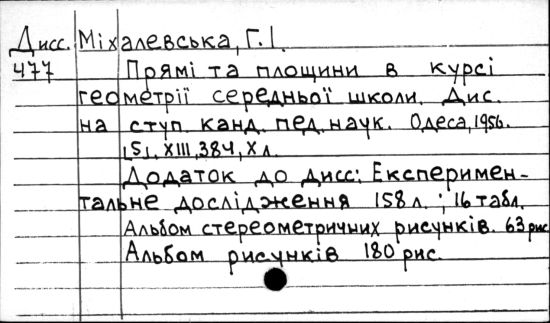 Дисс. Міхалевська, Г.І.
477 Прямі та площини в курсі
геометрії середньої школи. Дис.
на ступ. канд. пед. наук. Одеса, 1956.
[5], XIII, 384, X л.
Додаток до дисс: Експеримен-
тальне дослідження 158 л.; 16 табл.
Альбом стереометричних рисунків. 63 рис
Альбом рисунків 180 рис.